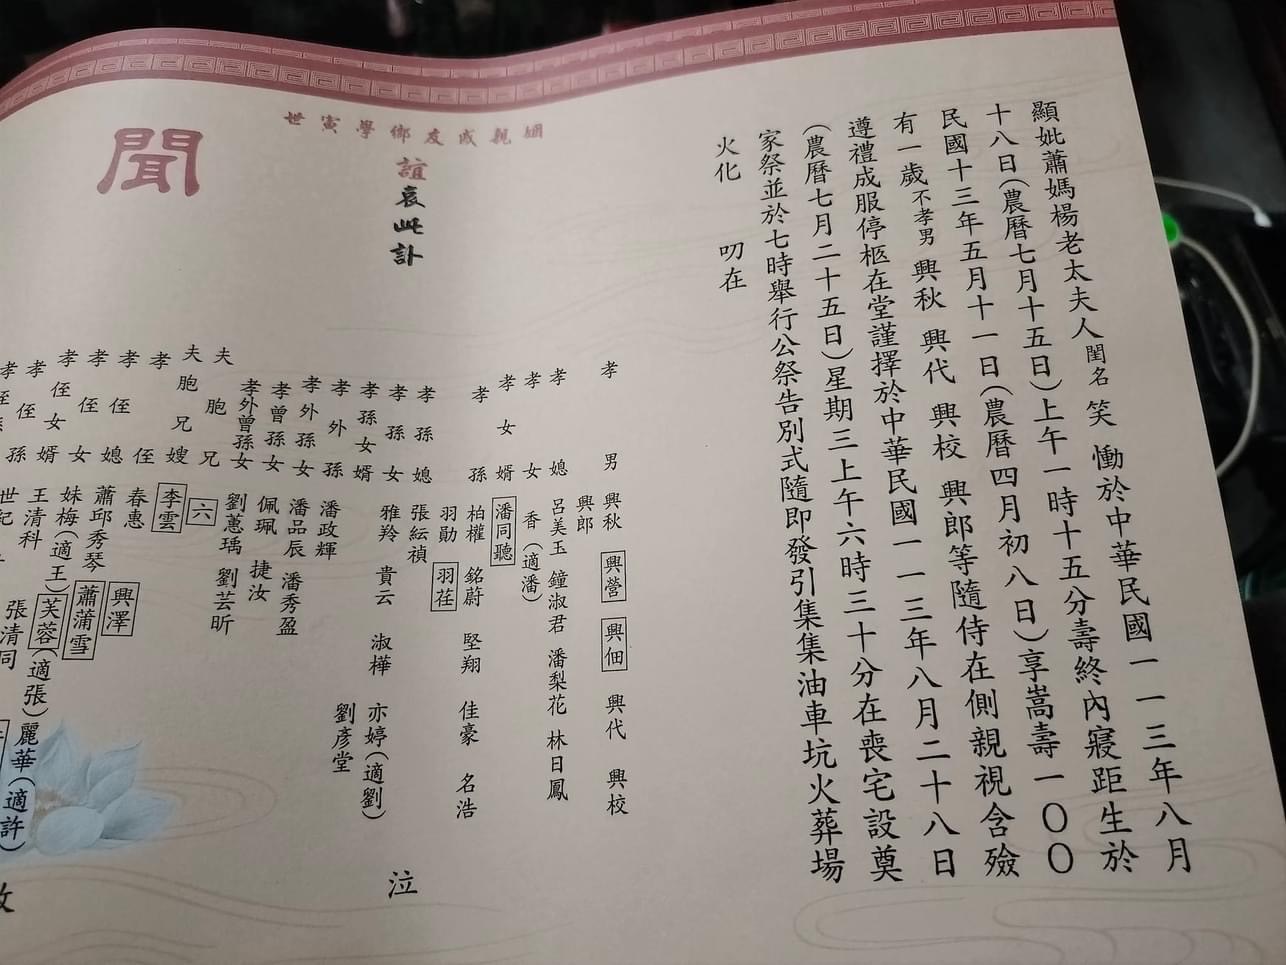 顯妣蕭媽楊老太夫人閨名笑 慟於中華民國一一三年八月
十八日(農曆七月十五日)上午一時十五分壽終內寢距生於
民國十三年五月十一日(農曆四月初八日)享嵩壽一〇〇
有一歲不孝男 興秋 興代 興校 興郎等隨侍在側親視含殮
遵禮成服停柩在堂謹擇於中華民國一一三年八月二十八日
(農曆七月二十五日)星期三上午六時三十分在喪宅設奠
家祭並於七時舉行公祭告別式隨即發引集集油車坑火葬場
火化 叨在
姻親戚友鄉學寅世
誼哀此訃
聞
孝男 興秋 興營 興佃 興代 興校
興郎
孝媳 呂美玉 鐘淑君 潘梨花 林日鳳
孝女 香(適潘)
孝女婿 潘同聽
孝孫 柏權 銘蔚 堅翔 佳豪 名浩
羽勛 羽荏
孝孫媳 張紜禎
孝孫女 雅羚 貴云 淑樺 亦婷(適劉)
孝孫女婿 劉彥堂
孝外孫 潘政輝
孝外孫女 潘品辰 潘秀盈
孝曾孫女 佩珮 捷汝
孝外曾孫女 劉蕙瑀 劉芸昕
夫胞兄 六
夫胞兄嫂 李雲
孝侄 春惠 興澤
孝侄媳 蕭邱秀琴 蕭蒲雪
孝侄女 妹梅(適王) 芙蓉(適張) 麗華(適許)
孝侄女婿 王清科 張清同
孝侄孫 世紀
泣